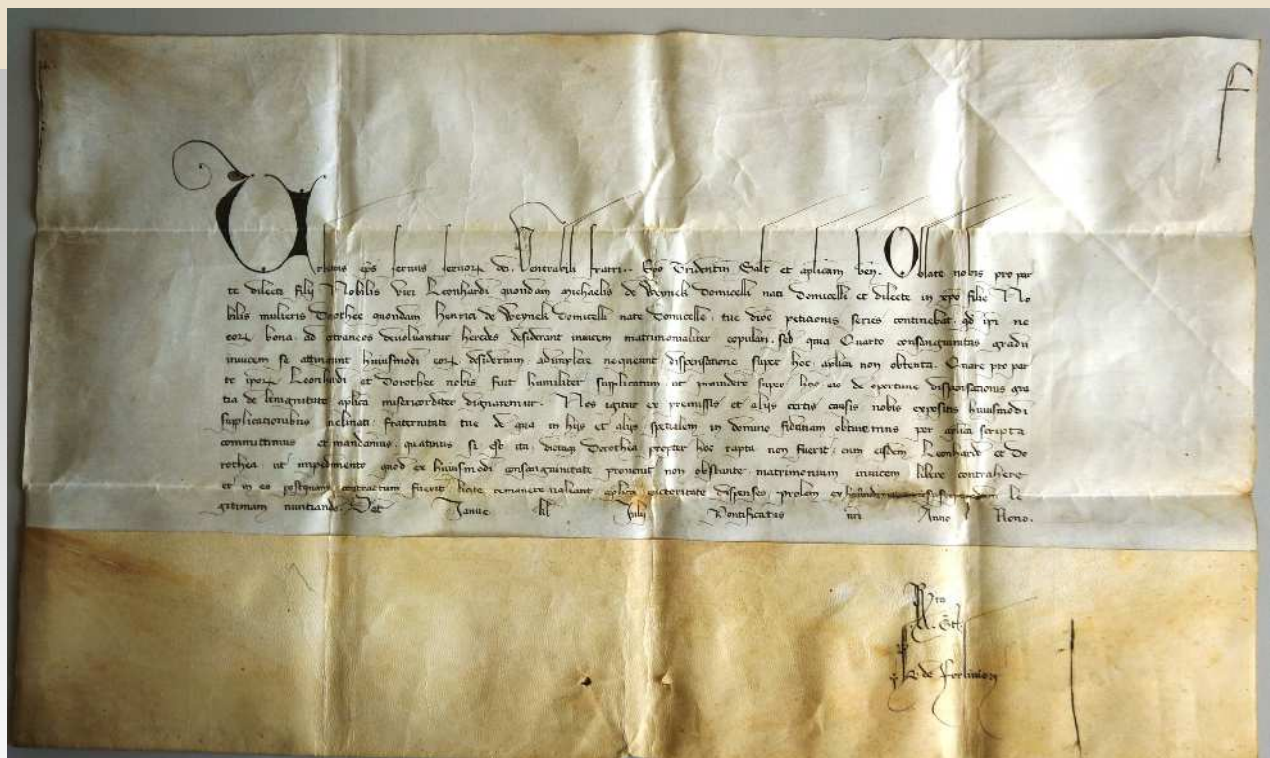 Urbanus ep̄s servus servoꝝ dei. Venerabili fratri .. Ep̄o Tridentin̄ Salt̄ et aplicam ben̄. Oblate nobis pro par
te dilecti filij Nobilis viri Leonhardi quondam michaelis de Weynek domicelli nati domicelli et dilecte in xp̄o filie No
bilis mulieris Dorothee quondam henrici de Weynek domicelli nate domicelle, tue dioc̄ petitionis series continebat, qd̄ ip̄i ne
eoꝝ bona ad extraneos devolvantur heredes desiderant invicem matrimonialiter copulari, sed quia Quarto consanguinitatis gradu
invicem se attingunt huiusmodi eoꝝ desiderium adimplere nequeunt dispensatione super hoc aplica non obtenta. Quare pro par
te ip̄oꝝ Leonhardi et Dorothee nobis fuit humiliter supplicatum, ut providere super hoc eis de oportune dispensationis gra
tia de benignitate aplica misericorditer dignaremur. Nos igitur ex premissis et alijs certis causis nobis expositis huiusmodi
supplicationibus inclinati, fraternitati tue de qua in hijs et alijs specialem in domino fiduciam obtinemus per aplica scripta
committimus et mandamus, quatinus si est ita, dictaqꝫ Dorothea propter hoc rapta non fuerit, cum eisdem Leonhardo et Do
rothea, ut impedimento quod ex huiusmodi consanguinitate provenit non obstante, matrimonium invicem libere contrahere
et in eo postquam contractum fuerit licite remanere valeant aplica auctoritate dispenses, prolem ex le
gitimam nuntiando. Dat̄ Janue kl̄ Julij Pontificatus nr̄i Anno Nono.
Pro
de Forlivio